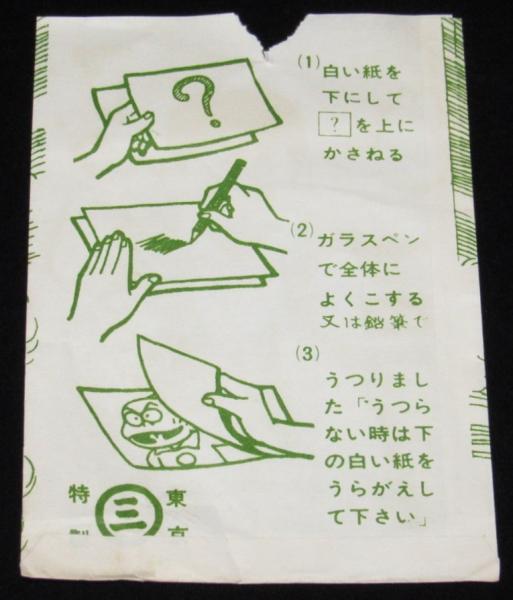 (1)
白い紙を
下にして
?を上に
かさねる
?
(2)
ガラスペン
で全体に
よくこする
又は鉛筆で
(3)
うつりまし
た「うつら
ない時は下
の白い紙を
うらがえし
て下さい」
東京
三
特製